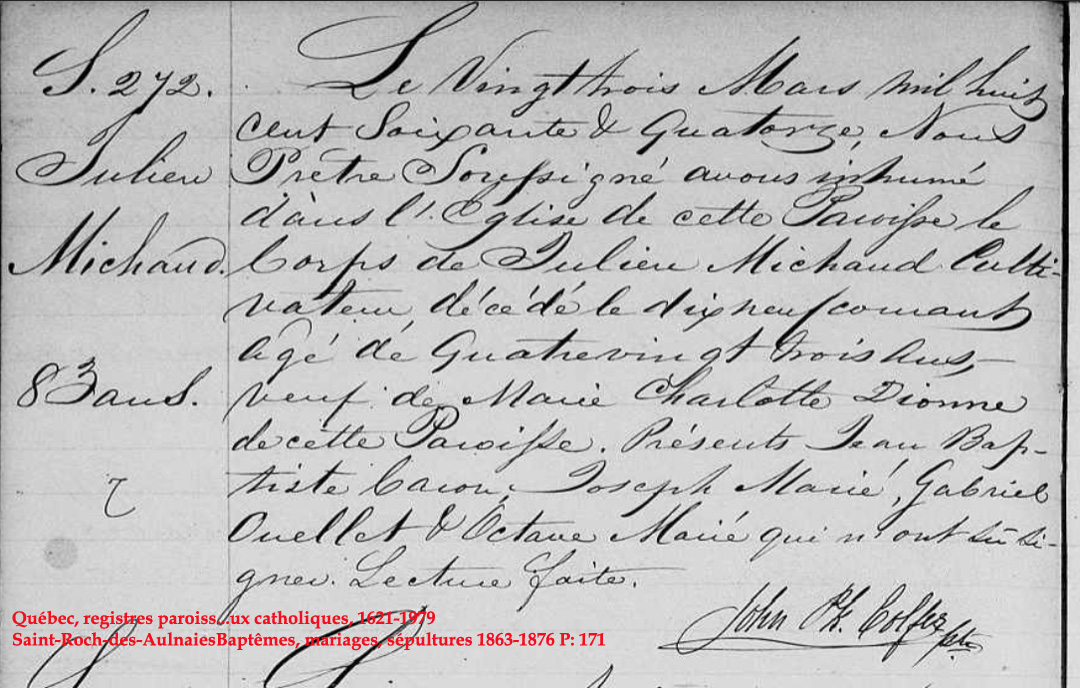 S. 272.
Julien
Michaud.
83 ans.
Le Vingt trois Mars mil huit
cent Soixante & Quatorze, Nous
Prêtre Soussigné avons inhumé
dans l'Eglise de cette Paroisse le
Corps de Julien Michaud Culti-
vateur, décédé le dix neuf courant
agé de Quatrevingt trois Ans,
veuf de Marie Charlotte Dionne
de cette Paroisse. Présents Jean Bap-
tiste Caron, Joseph Marié, Gabriel
Ouellet & Octave Marié qui n'ont su si-
gner. Lecture faite.
John Ph. Colfer ptre
Québec, registres paroiss..ux catholiques, 1621-1979
Saint-Roch-des-AulnaiesBaptêmes, mariages, sépultures 1863-1876 P: 171